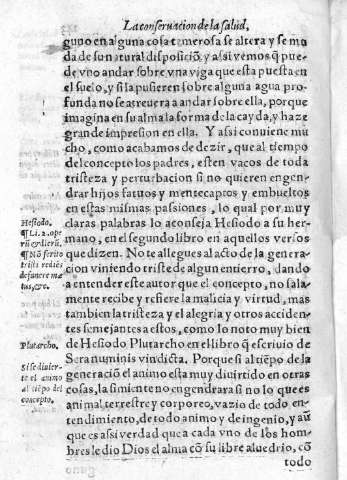 La conseruacion de la salud,
guno en alguna cosa temerosa se altera y se mu
da de su natural disposiciō, y assi vemos q̄ pue-
de vno andar sobre vna viga que esta puesta en
el suelo, y si la pusieren sobre alguna agua pro-
funda no se atreuera a andar sobre ella, porque
imagina en su alma la forma de la cayda, y haze
grande impresion en ella. Y assi conuiene mu
cho, como acabamos de dezir, que al tiempo
del concepto los padres, esten vacos de toda
tristeza y perturbacion si no quieren engen-
drar hijos fatuos y mentecaptos y embueltos
en estas mismas passiones, lo qual por muy
claras palabras lo aconseja Hesiodo a su her-
mano, en el segundo libro en aquellos versos
que dizen. No te allegues al acto de la genera-
cion viniendo triste de algun entierro, dando
a entender este autor que el concepto, no sala-
mente recibe y refiere la malicia y virtud, mas
tambien la tristeza y el alegria y otros acciden-
tes semejantes a estos, como lo noto muy bien
de Hesiodo Plutarcho en el libro q̄ escriuio de
Sera numinis vindicta. Porque si al tiēpo de la
generacion el animo esta muy diuirtido en otras
cosas, la simiente no engendrara si no lo que es
animal terrestre y corporeo, vazio de todo en-
tendimiento, de todo animo y de ingenio, y aū
que es assi verdad que a cada vno de los hom-
bres le dio Dios el alma cō su libre aluedrio, cō
todo
Hesiodo.
¶ Li. 2. ope
¶ Nō
Plutarcho.
Si se diuier-
te el animo
al tiēpo del
concepto.